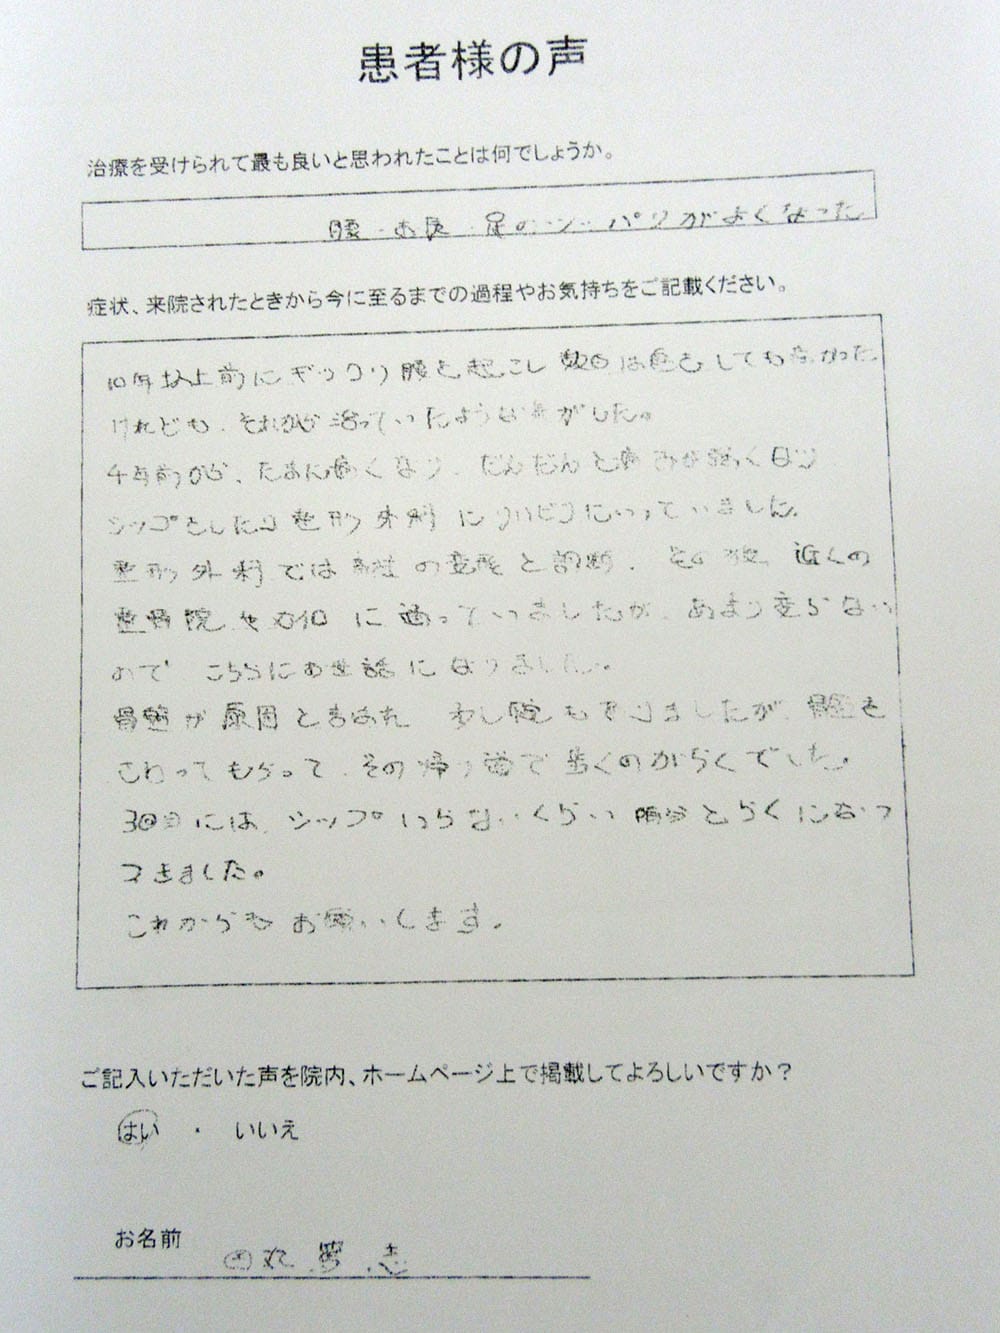 患者様の声
治療を受けられて最も良いと思われたことは何でしょうか。
腰・お尻・足のツッパリがよくなった
症状、来院されたときから今に至るまでの過程やお気持ちをご記載ください。
10年以上前にギックリ腰を起こし数日は何をしても痛かった
けれども、それから治っていたような気がした。
4年前から、たまに痛くなり、だんだんと痛みが強くなり
シップをしたり整形外科にリハビリにいっていました。
整形外科では の変形と診断、その後、近くの
整骨院や に通っていましたが、あまり変らない
ので こちらにお世話になりました。
骨盤が原因と言われ ましたが、骨盤を
さわってもらって、その帰り道で歩くのがらくでした。
3回目には、シップいらないくらい随分とらくになっ
てきました。
これからもお願いします。
ご記入いただいた声を院内、ホームページ上で掲載してよろしいですか？
はい ・ いいえ
お名前 田丸 志